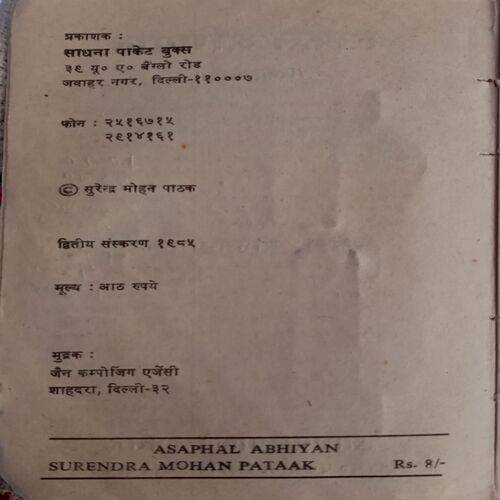 प्रकाशक :
साधना पाकेट बुक्स
३९ यू० ए० बैंग्लो रोड
जवाहर नगर, दिल्ली-११०००७
फोन : २५१६७१५
२९१४१६१
© सुरेन्द्र मोहन पाठक
द्वितीय संस्करण १९८५
मूल्य : आठ रुपये
मुद्रक :
जैन कम्पोजिंग एजेंसी
शाहदरा, दिल्ली-३२
ASAPHAL ABHIYAN
SURENDRA MOHAN PATAAK Rs. 8/-